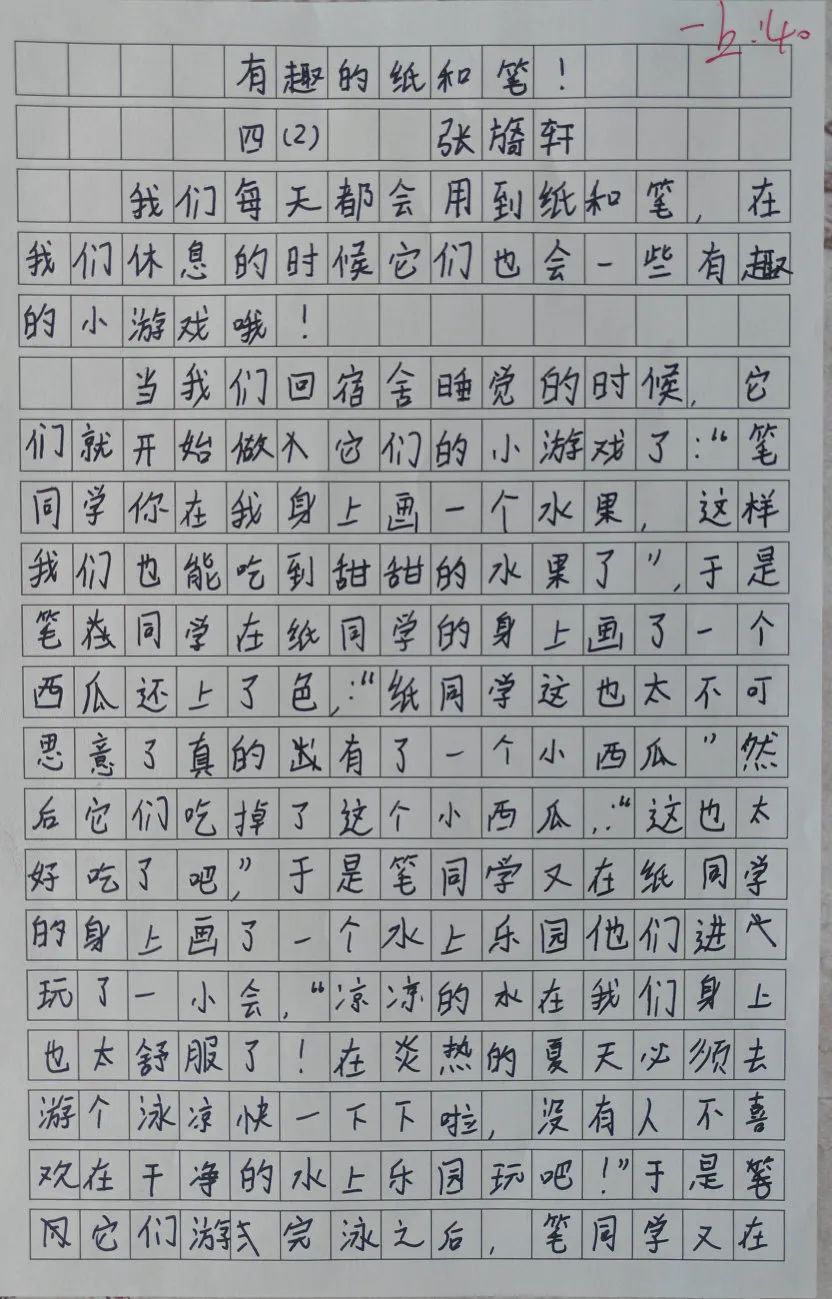 有趣的纸和笔！
四（2） 张旖轩
我们每天都会用到纸和笔，在
我们休息的时候它们也会一些有趣
的小游戏哦！
当我们回宿舍睡觉的时候，它
们就开始做它们的小游戏了：“笔
同学你在我身上画一个水果，这样
我们也能吃到甜甜的水果了”，于是
笔同学在纸同学的身上画了一个
西瓜还上了色，：“纸同学这也太不可
思意了真的出有了一个小西瓜”然
后它们吃掉了这个小西瓜，：“这也太
好吃了吧，”于是笔同学又在纸同学
的身上画了一个水上乐园他们进
玩了一小会，“凉凉的水在我们身上
也太舒服了！在炎热的夏天必须去
游个泳凉快一下下啦，没有人不喜
欢在干净的水上乐园玩吧！”于是笔
它们游完泳之后，笔同学又在